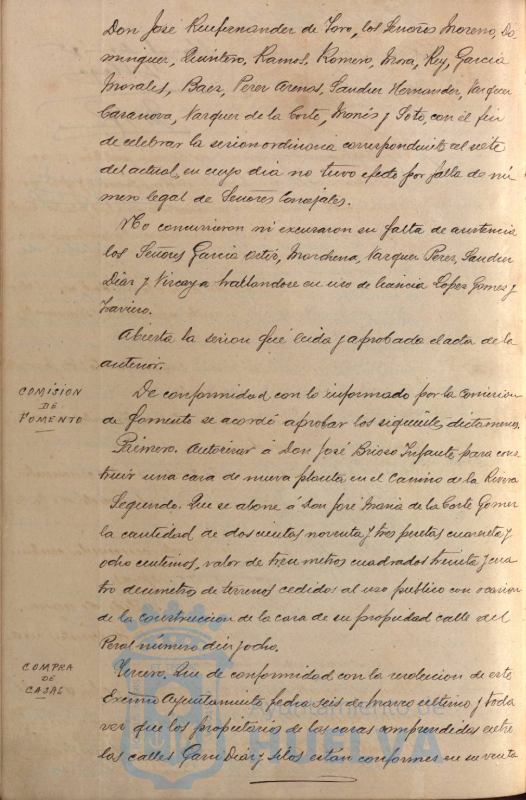 Don José Renfernander de Toro, los Señores Moreno, Do
minguer, Quintero, Ramos, Romero, Mora, Rey, Garcia
Morales, Baez, Perez Arenas, Sanchez Hernandez, Vazquez
Casanova, Vazquez de la Corte, Monís y Soto, con el fin
de celebrar la sesion ordinaria correspondiente al siete
del actual, en cuyo dia no tuvo efecto por falta de nú
mero legal de Señores Concejales.
No concurrieron ni excusaron su falta de asistencia
los Señores Garcia Marchena, Vazquez Perez, Sanchez
Diaz y Vizcaya hallandose en uso de licencia Lopez Gomez y
Abierta la sesion fué leida y aprobada el acta de la
anterior.
COMISION
DE
FOMENTO
De conformidad con lo informado por la Comision
de fomento se acordó aprobar los siguientes dictamenes.
Primero. Autorizar á Don José Brioso Infante para cons
truir una casa de nueva planta en el Camino de la Rivera
Segundo. Que se abone á Don José Maria de la Corte Gomez
la cantidad de doscientas noventa y tres pesetas cuarenta y
ocho centimos, valor de trece metros cuadrados treinta y cua
tro decimetros de terrenos cedidos al uso publico con ocasion
de la construccion de la casa de su propiedad calle del
Peral número diez y ocho.
COMPRA
DE
CASAS
Tercero. Que de conformidad con la resolucion de este
Excmo Ayuntamiento fecha seis de marzo ultimo y toda
vez que los propietarios de las casas comprendidas entre
las calles Garci Diaz y Silos estan conformes en su venta
Ayuntamiento de
HUELVA